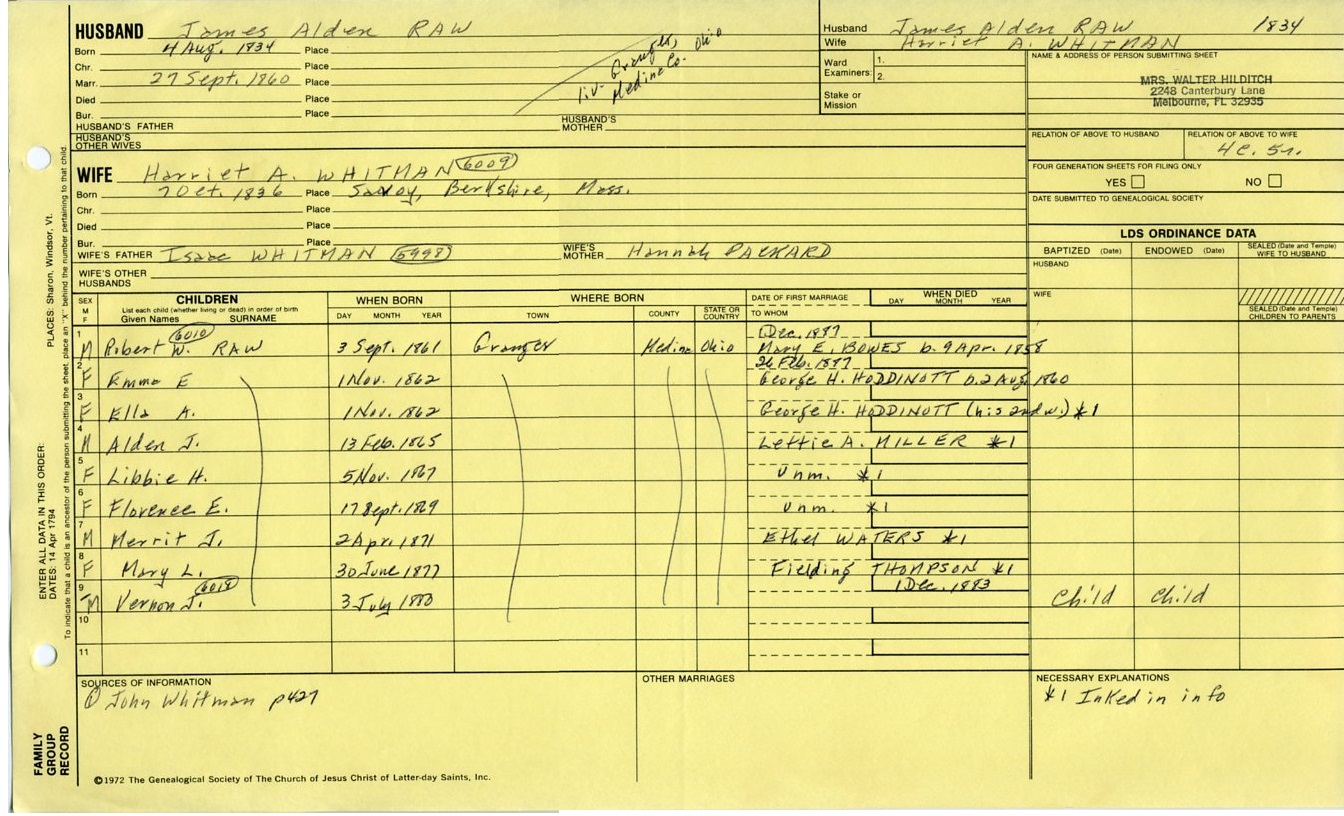 HUSBAND James Alden RAW
Born 4 Aug. 1834 Place
Chr. Place
Marr. 27 Sept. 1860 Place
Died Place
Bur. Place
liv. Granger, Ohio
Medina Co.
HUSBAND'S FATHER HUSBAND'S MOTHER
HUSBAND'S OTHER WIVES
Husband James Alden RAW 1834
Wife Harriet A. WHITMAN
Ward 1.
Examiners: 2.
Stake or Mission
NAME & ADDRESS OF PERSON SUBMITTING SHEET
MRS. WALTER HILDITCH
2248 Canterbury Lane
Melbourne, FL 32935
RELATION OF ABOVE TO HUSBAND RELATION OF ABOVE TO WIFE
4c. 5r.
FOUR GENERATION SHEETS FOR FILING ONLY
YES NO
DATE SUBMITTED TO GENEALOGICAL SOCIETY
WIFE Harriet A. WHITMAN 6009
Born 7 Oct. 1836 Place Savoy, Berkshire, Mass.
Chr. Place
Died Place
Bur. Place
WIFE'S FATHER Isaac WHITMAN 5998 WIFE'S MOTHER Hannah PACKARD
WIFE'S OTHER HUSBANDS
LDS ORDINANCE DATA
BAPTIZED (Date) ENDOWED (Date) SEALED (Date and Temple) WIFE TO HUSBAND
HUSBAND
WIFE
SEALED (Date and Temple) CHILDREN TO PARENTS
SEX M F CHILDREN WHEN BORN WHERE BORN DATE OF FIRST MARRIAGE WHEN DIED
List each child (whether living or dead) in order of birth
Given Names SURNAME DAY MONTH YEAR TOWN COUNTY STATE OR COUNTRY TO WHOM DAY MONTH YEAR
6010 Dec. 1887
1 M Robert W. RAW 3 Sept. 1861 Granger Medina Ohio Mary E. BOWES b. 9 Apr. 1858
26 Feb. 1887
2 F Emma E 1 Nov. 1862 George H. HODDINOTT b. 2 Aug. 1860
3 F Ella A. 1 Nov. 1862 George H. HODDINOTT (his 2nd w.) *1
4 M Alden J. 13 Feb. 1865 Lettie A. MILLER *1
5 F Libbie H. 5 Nov. 1867 Unm. *1
6 F Florence E. 17 Sept. 1869 Unm. *1
7 M Merrit J. 2 Apr. 1871 Ethel WATERS *1
8 F Mary L. 30 June 1877 Fielding THOMPSON *1
6018 1 Dec. 1883
9 M Vernon J. 3 July 1880 Child Child
10
11
SOURCES OF INFORMATION OTHER MARRIAGES NECESSARY EXPLANATIONS
① John Whitman p427 *1 Inked in info
©1972 The Genealogical Society of The Church of Jesus Christ of Latter-day Saints, Inc.
FAMILY GROUP RECORD
ENTER ALL DATA IN THIS ORDER:
DATES: 14 Apr 1794
PLACES: Sharon, Windsor, Vt.
To indicate that a child is an ancestor of the person submitting the sheet, place an "X" behind the number pertaining to that child.